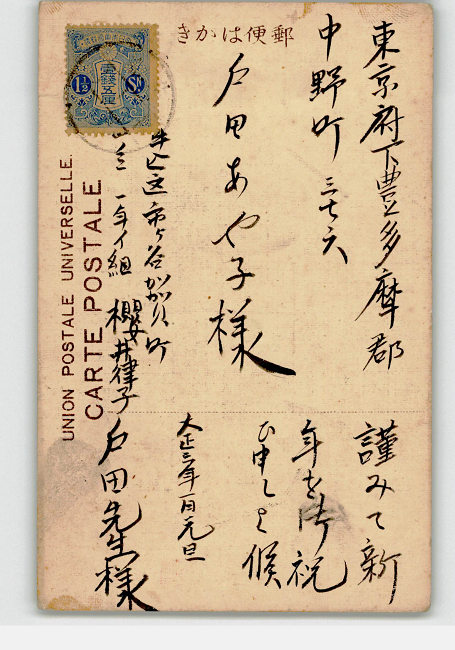 郵便はかき
東京府下豊多摩郡
中野町 三七六
戸田あや子様
牛込区市ヶ谷加賀町
一年イ組 櫻井律子
謹みて新
年を御祝
ひ申し上候
大正三年一月元旦
戸田先生様
壹錢五厘
1½ Sn
UNION POSTALE UNIVERSELLE.
CARTE POSTALE